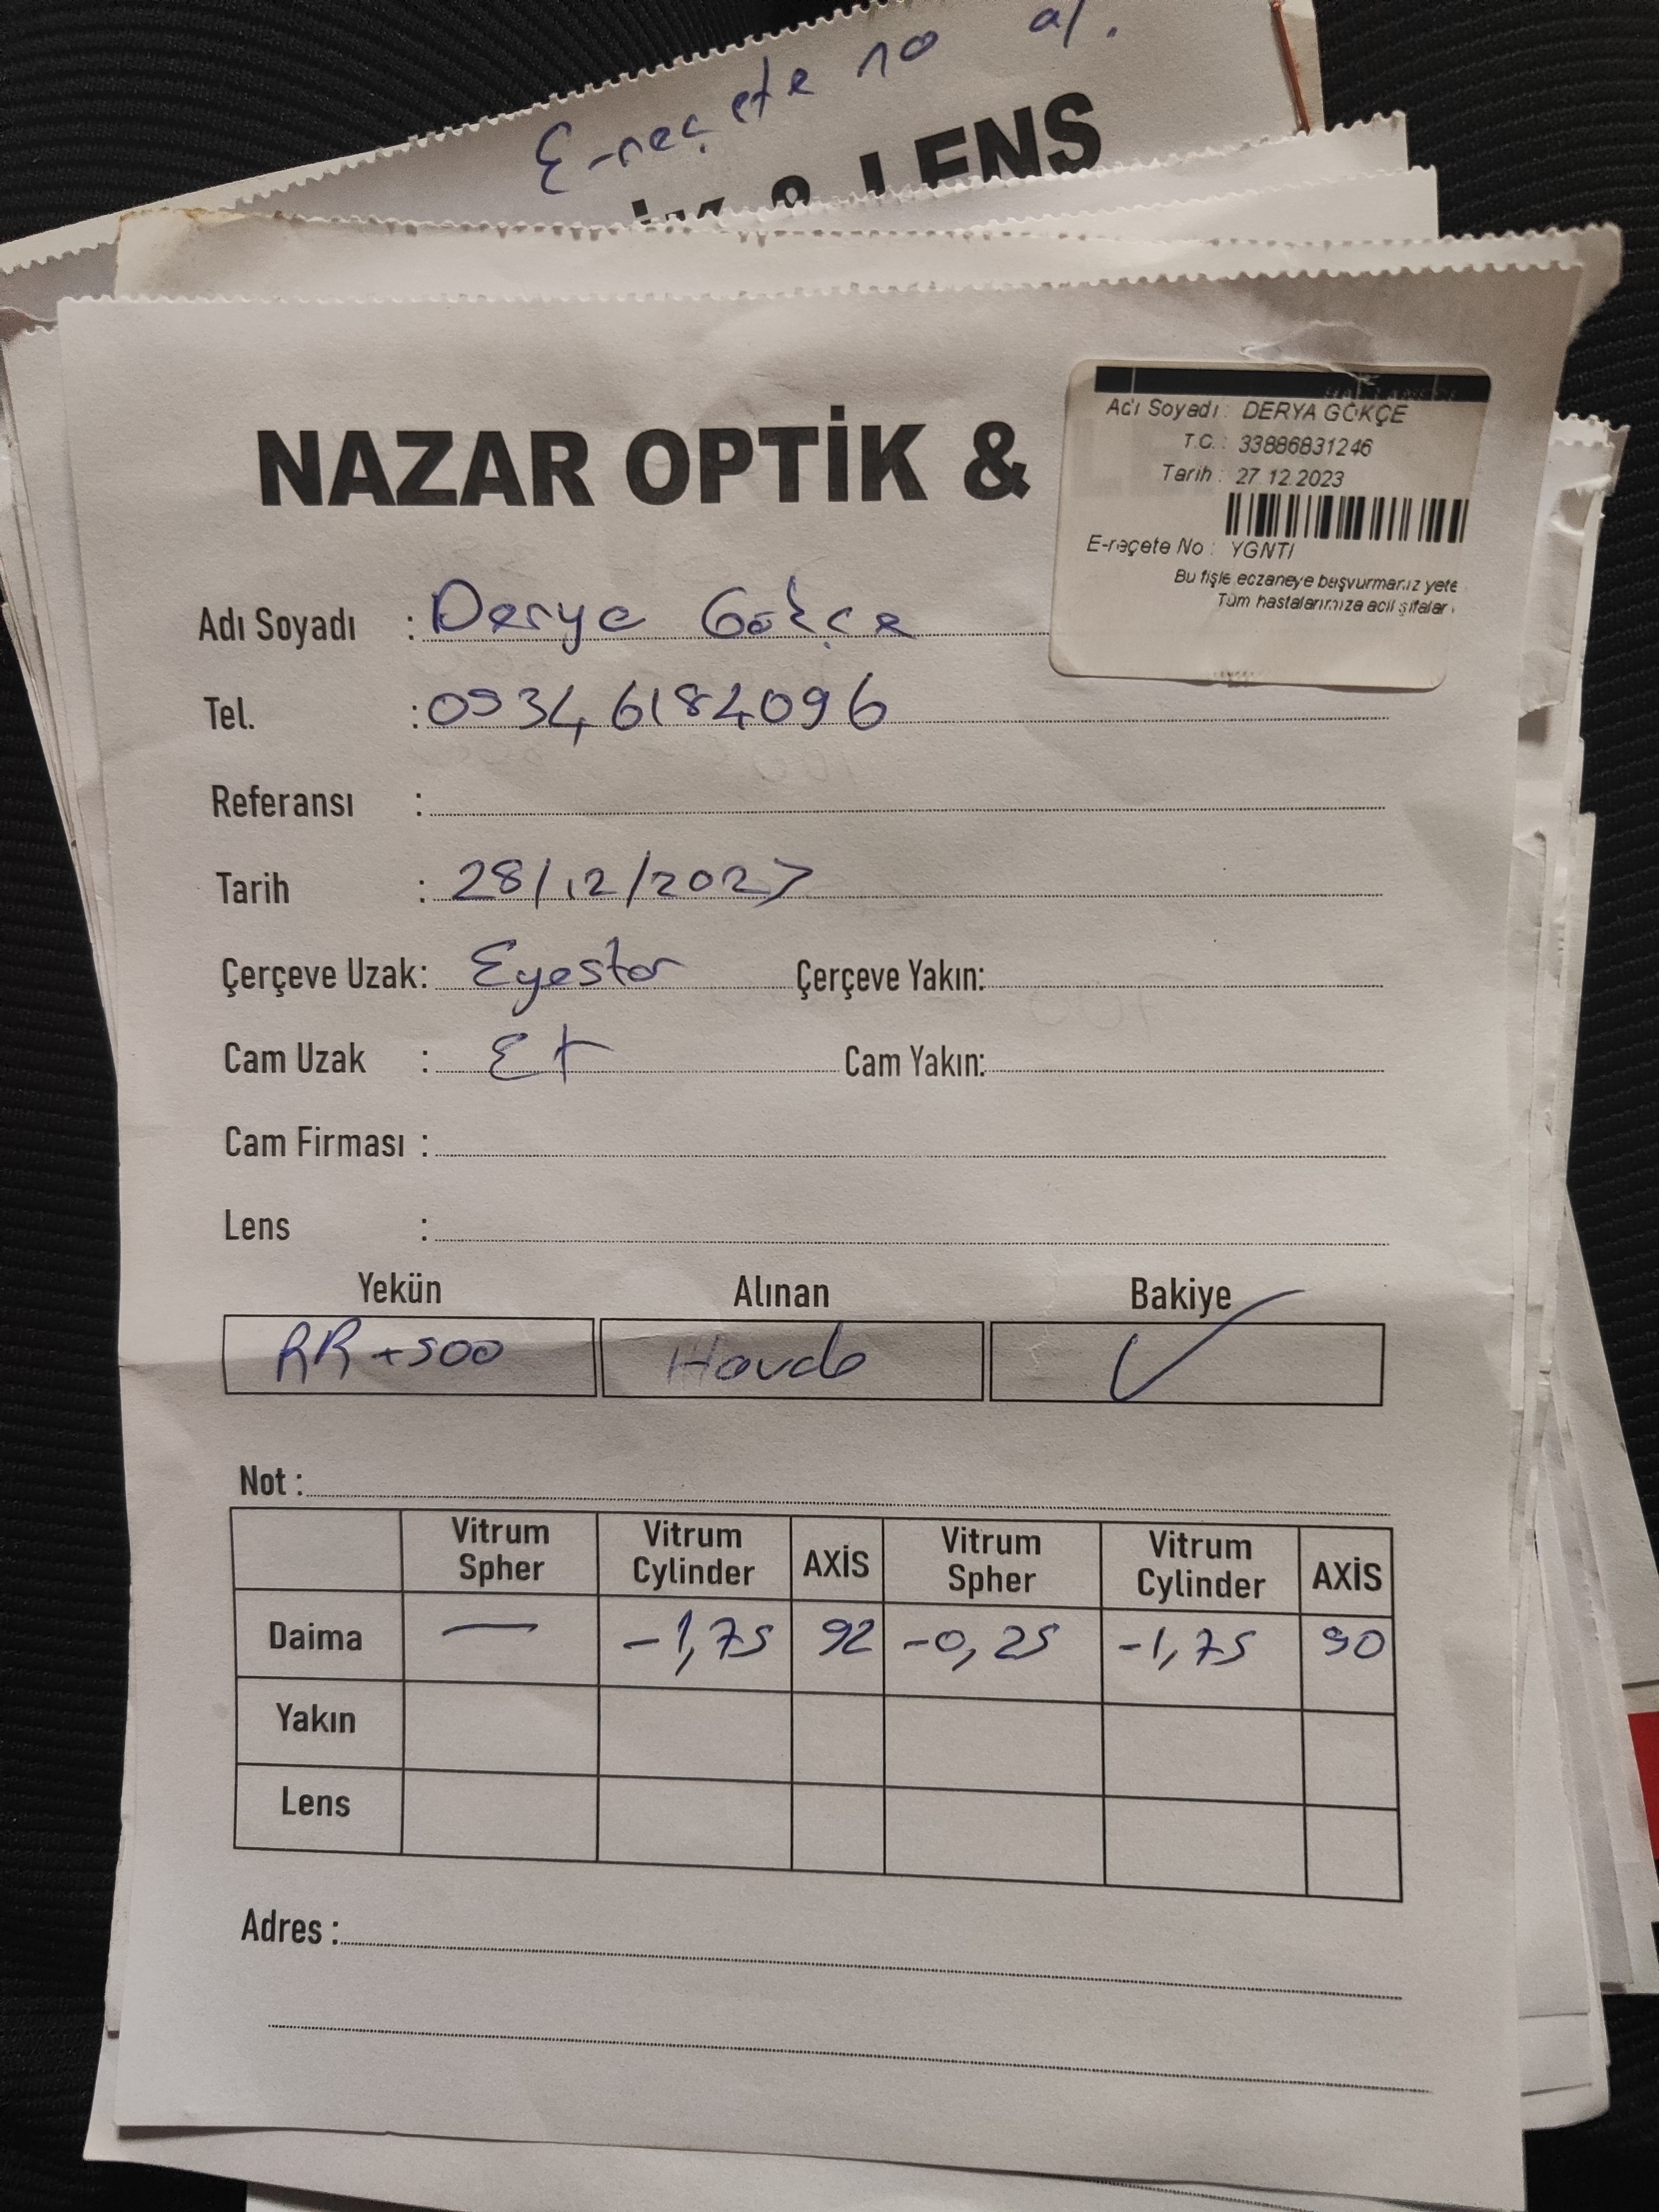 E-reçete no al.
& LENS
NAZAR OPTİK &
Adı Soyadı : DERYA GÖKÇE
T.C. : 33886831246
Tarih : 27.12.2023
E-reçete No : YGNTI
Bu fişle eczaneye başvurmanız yete
Tüm hastalarımıza acil şifalar
Adı Soyadı : Derya Gökçe
Tel. : 0534 6184096
Referansı :
Tarih : 28/12/2023
Çerçeve Uzak: Eyestor Çerçeve Yakın:
Cam Uzak : Cam Yakın:
Cam Firması :
Lens :
Yekün Alınan Bakiye
RR+500 ✓
Not :
Vitrum Spher Vitrum Cylinder AXİS Vitrum Spher Vitrum Cylinder AXİS
Daima — -1,75 92 -0,25 -1,75 90
Yakın
Lens
Adres :